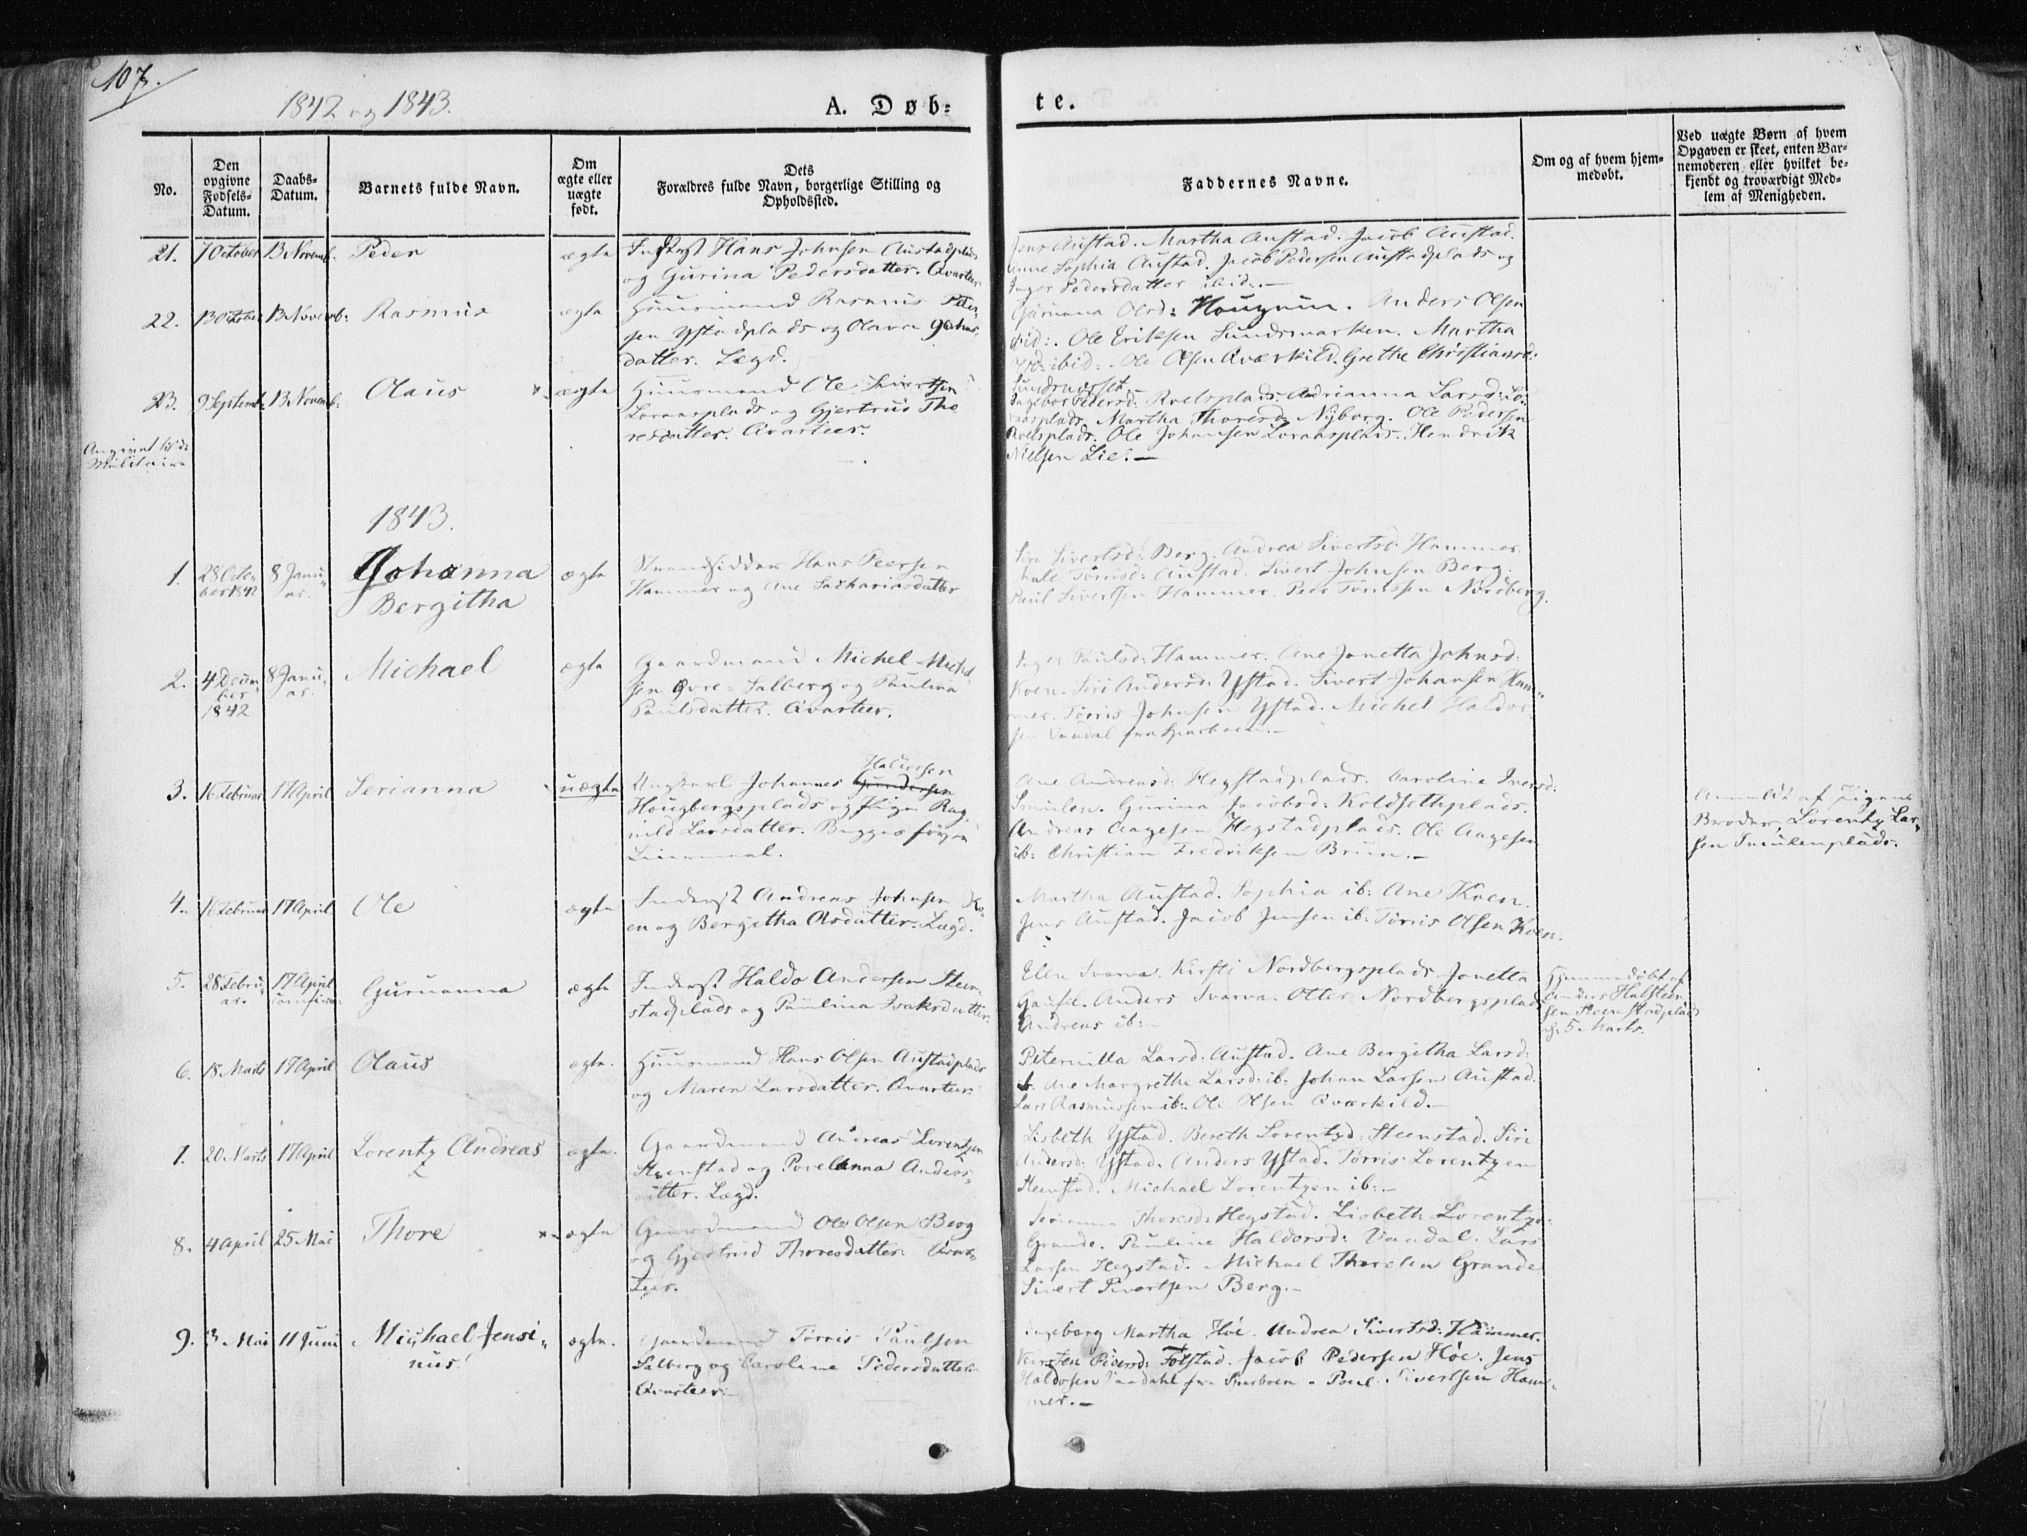 107.
1842 og 1843.
A. Døb=
te.
No.
Den opgivne Fødsels-Datum.
Daabs-Datum.
Barnets fulde Navn.
Om ægte eller uægte født.
Dets Forældres fulde Navn, borgerlige Stilling og Opholdssted.
Faddernes Navne.
Om og af hvem hjemmedøbt.
Ved uægte Børn af hvem Opgaven er skeet, enten Barnemoderen eller hvilket bekjendt og troværdigt Medlem af Menigheden.
21. 7 October 13 Novemb. Peder ægte
Hans Johnsen Austadplads
og Gurina Pedersdatter. Qvarteer
Jens Austad. Martha Austad. Jacob Austad.
Anne Sophia Austad. Jacob Pedersen Austadplads og
Inger Pedersdatter ibid:—
22. 13 October 13 Novemb: Rasmus ægte
Huusmand Rasmus Peter-
sen Ystadplads og Olava
datter. Lægd.
Olsd: Hougum. Anders Olsen
ibid:. Ole Eriksen Sundsmarken. Martha
ibid:. Ole Olsen Qværkild. Grethe Christiansd:
23. 9 Septemb. 13 Novemb: Olaus ægte
Huusmand Ole Sivertsen
Loraasplads og Gjertrud Tho
resdatter. Qvarteer.
Ingebor Pedersd: Roelsplads. Adrianna Larsd: Lo-
raasplads. Martha Thoresd: Nyborg. Ole Pedersen
Roelsplads. Ole Johansen Loraasplads. Hendrik
Nielsen Lie.—
Militaire
1843.
1. 28 Octo-
ber 1842
8 Janu-
ar.
Johanna
Bergitha
ægte
Strandsidder Hans Peersen
Hammer og Ane Zachariasdatter
Siri Sivertsd: Berg. Andrea Sivertsd: Hammer.
Tørrisd: Austad. Sivert Johnsen Berg.
Paul Sivertsen Hammer. Peder Tørrissen Nordberg.
2. 4 Decem-
ber
1842
8 Janu-
ar.
Michael ægte
Gaardmand Michel Michel-
sen Øvre-Salberg og Paulina
Paulsdatter. Qvarteer.
Inger Paulsd: Hammer. Ane Jonetta Johnsd:
Koen. Siri Andersd: Ystad. Sivert Johansen Ham-
mer. Tørris Johnsen Ystad. Michel Haldo
sen Vaadal fra Sparboen.—
3. 16 Februar 17 April Serianna uægte
Ungkarl Johannes Haldersen
Hougbergsplads og Pigen Rag-
nild Larsdatter. Begges første
Leiermaal.
Ane Andreasd: Hegstadplads. Caroline Iversd:
Smulen. Gurina Jacobsd: Koldsethplads.
Andreas Aagesen Hegstadplads. Ole Aagesen
ib: Christian Fredriksen Brun.—
Anmeldt af Pigens
Broder, Lorentz Lar-
sen Smulenplads.
4. 16 Februar 17 April Ole ægte
Inderst Andreas Johnsen Ko-
en og Bergitha Olsdatter. Lægd.
Martha Austad. Sophia ib: Ane Koen.
Jens Austad. Jacob Jensen ib: Tørris Olsen Koen.
5. 28 Febru-
ar.
17 April
Gurianna ægte
Inderst Haldo Andersen Steen-
stadplads og Paulina Isaksdatter.
Elen Svarva. Kirsti Nordbergsplads. Jonetta
Gausel. Anders Svarva. Otter Nordbergsplads
Andreas ib:
Hjemmedøbt af
Anders Halsteen-
sen Steenstadplads
d: 5 Marts.
6. 18 Marts 17 April Olaus ægte.
Huusmand Hans Olsen Austadplads
og Maren Larsdatter. Qvarteer.
Peternilla Larsd: Austad. Ane Bergitha Larsd:
ib. Ane Margrethe Larsd: ib: Johan Larsen Austad.
Lars Rasmussen ib: Ole Olsen Qværkild.—
7. 20 Marts 17 April Lorentz Andreas ægte.
Gaardmand Andreas Lorentzen
Steenstad og Povelanna Anders-
datter. Lægd.
Lisbeth Ystad. Bereth Lorentzd: Steenstad. Siri
Andersd: Ystad. Anders Ystad. Tørris Lorentzen
Steenstad. Michael Lorentzen ib:—
8. 4 April 25 Mai Thore ægte
Gaardmand Ole Olsen Berg
og Gjertrud Thoresdatter. Qvar-
teer.
Thoresd: Hegstad. Lisbeth Lorentzd:
Grande. Pauline Haldorsd: Vaadal. Lars
Larsen Hegstad. Michael Thoresen Grande
Sivert Sivertsen Berg.—
9. 3 Mai 11 Juni Michael Jensi-
nus.
ægte.
Gaardmand Tørris Paulsen
Salberg og Caroline Pedersdatter
Qvarteer.
Ingeborg Martha Høe. Andrea Sivertsd: Hammer.
Kirsten Pedersd: Folstad. Jacob Pedersen Høe. Jens
Haldosen Vaadahl fra Sparboen. Poul Sivertsen Ham-
mer.—